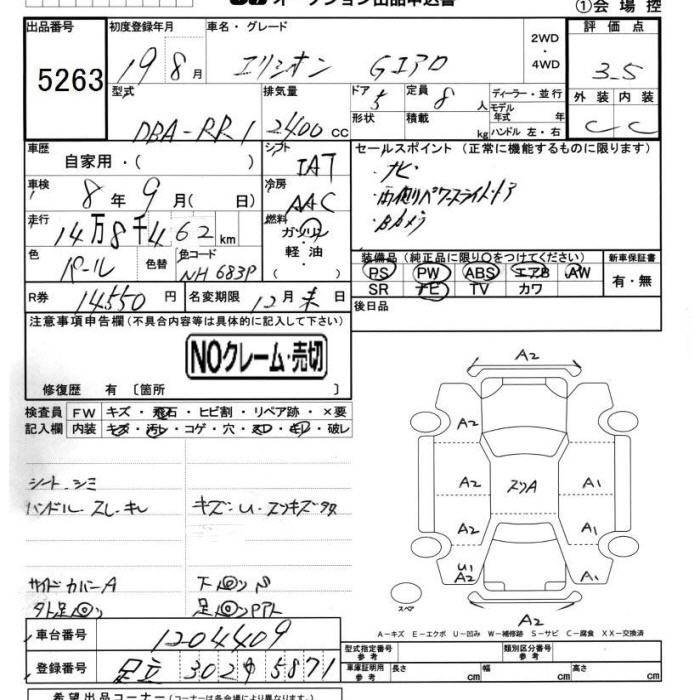 オークション出品申込書
①会場控
出品番号
5263
初度登録年月
19 8月
車名・グレード
エリシオン Gエアロ
2WD・4WD
評価点
3.5
外装 内装
C C
型式
DBA-RR1
排気量
2400cc
ドア 5
形状
定員 8人
積載 kg
ディーラー・並行
モデル年式 年
ハンドル 左・右
車歴
自家用・( )
シフト
IAT
セールスポイント (正常に機能するものに限ります)
・ナビ
・両側パワースライドドア
・Bカメラ
車検
8年9月( 日)
冷房
AAC
走行
14万8千462km
燃料
ガソリン
軽油
( )
色
パール
色替
色コード
NH683P
装備品(純正品に限り○をつけてください)
PS PW ABS エアB AW
SR ナビ TV カワ
新車保証書
有・無
R券
14550円
名変期限
12月末日
後日品
注意事項申告欄(不具合内容等は具体的に記入して下さい)
NOクレーム・売切
修復歴 有〔箇所 〕
検査員記入欄
FW キズ・飛石・ヒビ割・リペア跡・×要
内装 キズ・汚レ・コゲ・穴・スレ・キレ・破レ
シート シミ
ハンドル スレ・キレ
キズ・U・スリキズ多数
サイドカバーA
A2
A2
A2
A2
U1
A2
スリA
A1
A1
A1
A2
スペア
A-キズ E-エクボ U-凹み W-補修跡 S-サビ C-腐食 XX-交換済
車台番号
1204409
登録番号
足立 302 5871
型式指定番号
参考
類別区分番号
参考
車庫証明用
参考
長さ cm 幅 cm 高さ cm
希望出品コーナー(コーナーは各会場により異なります。)